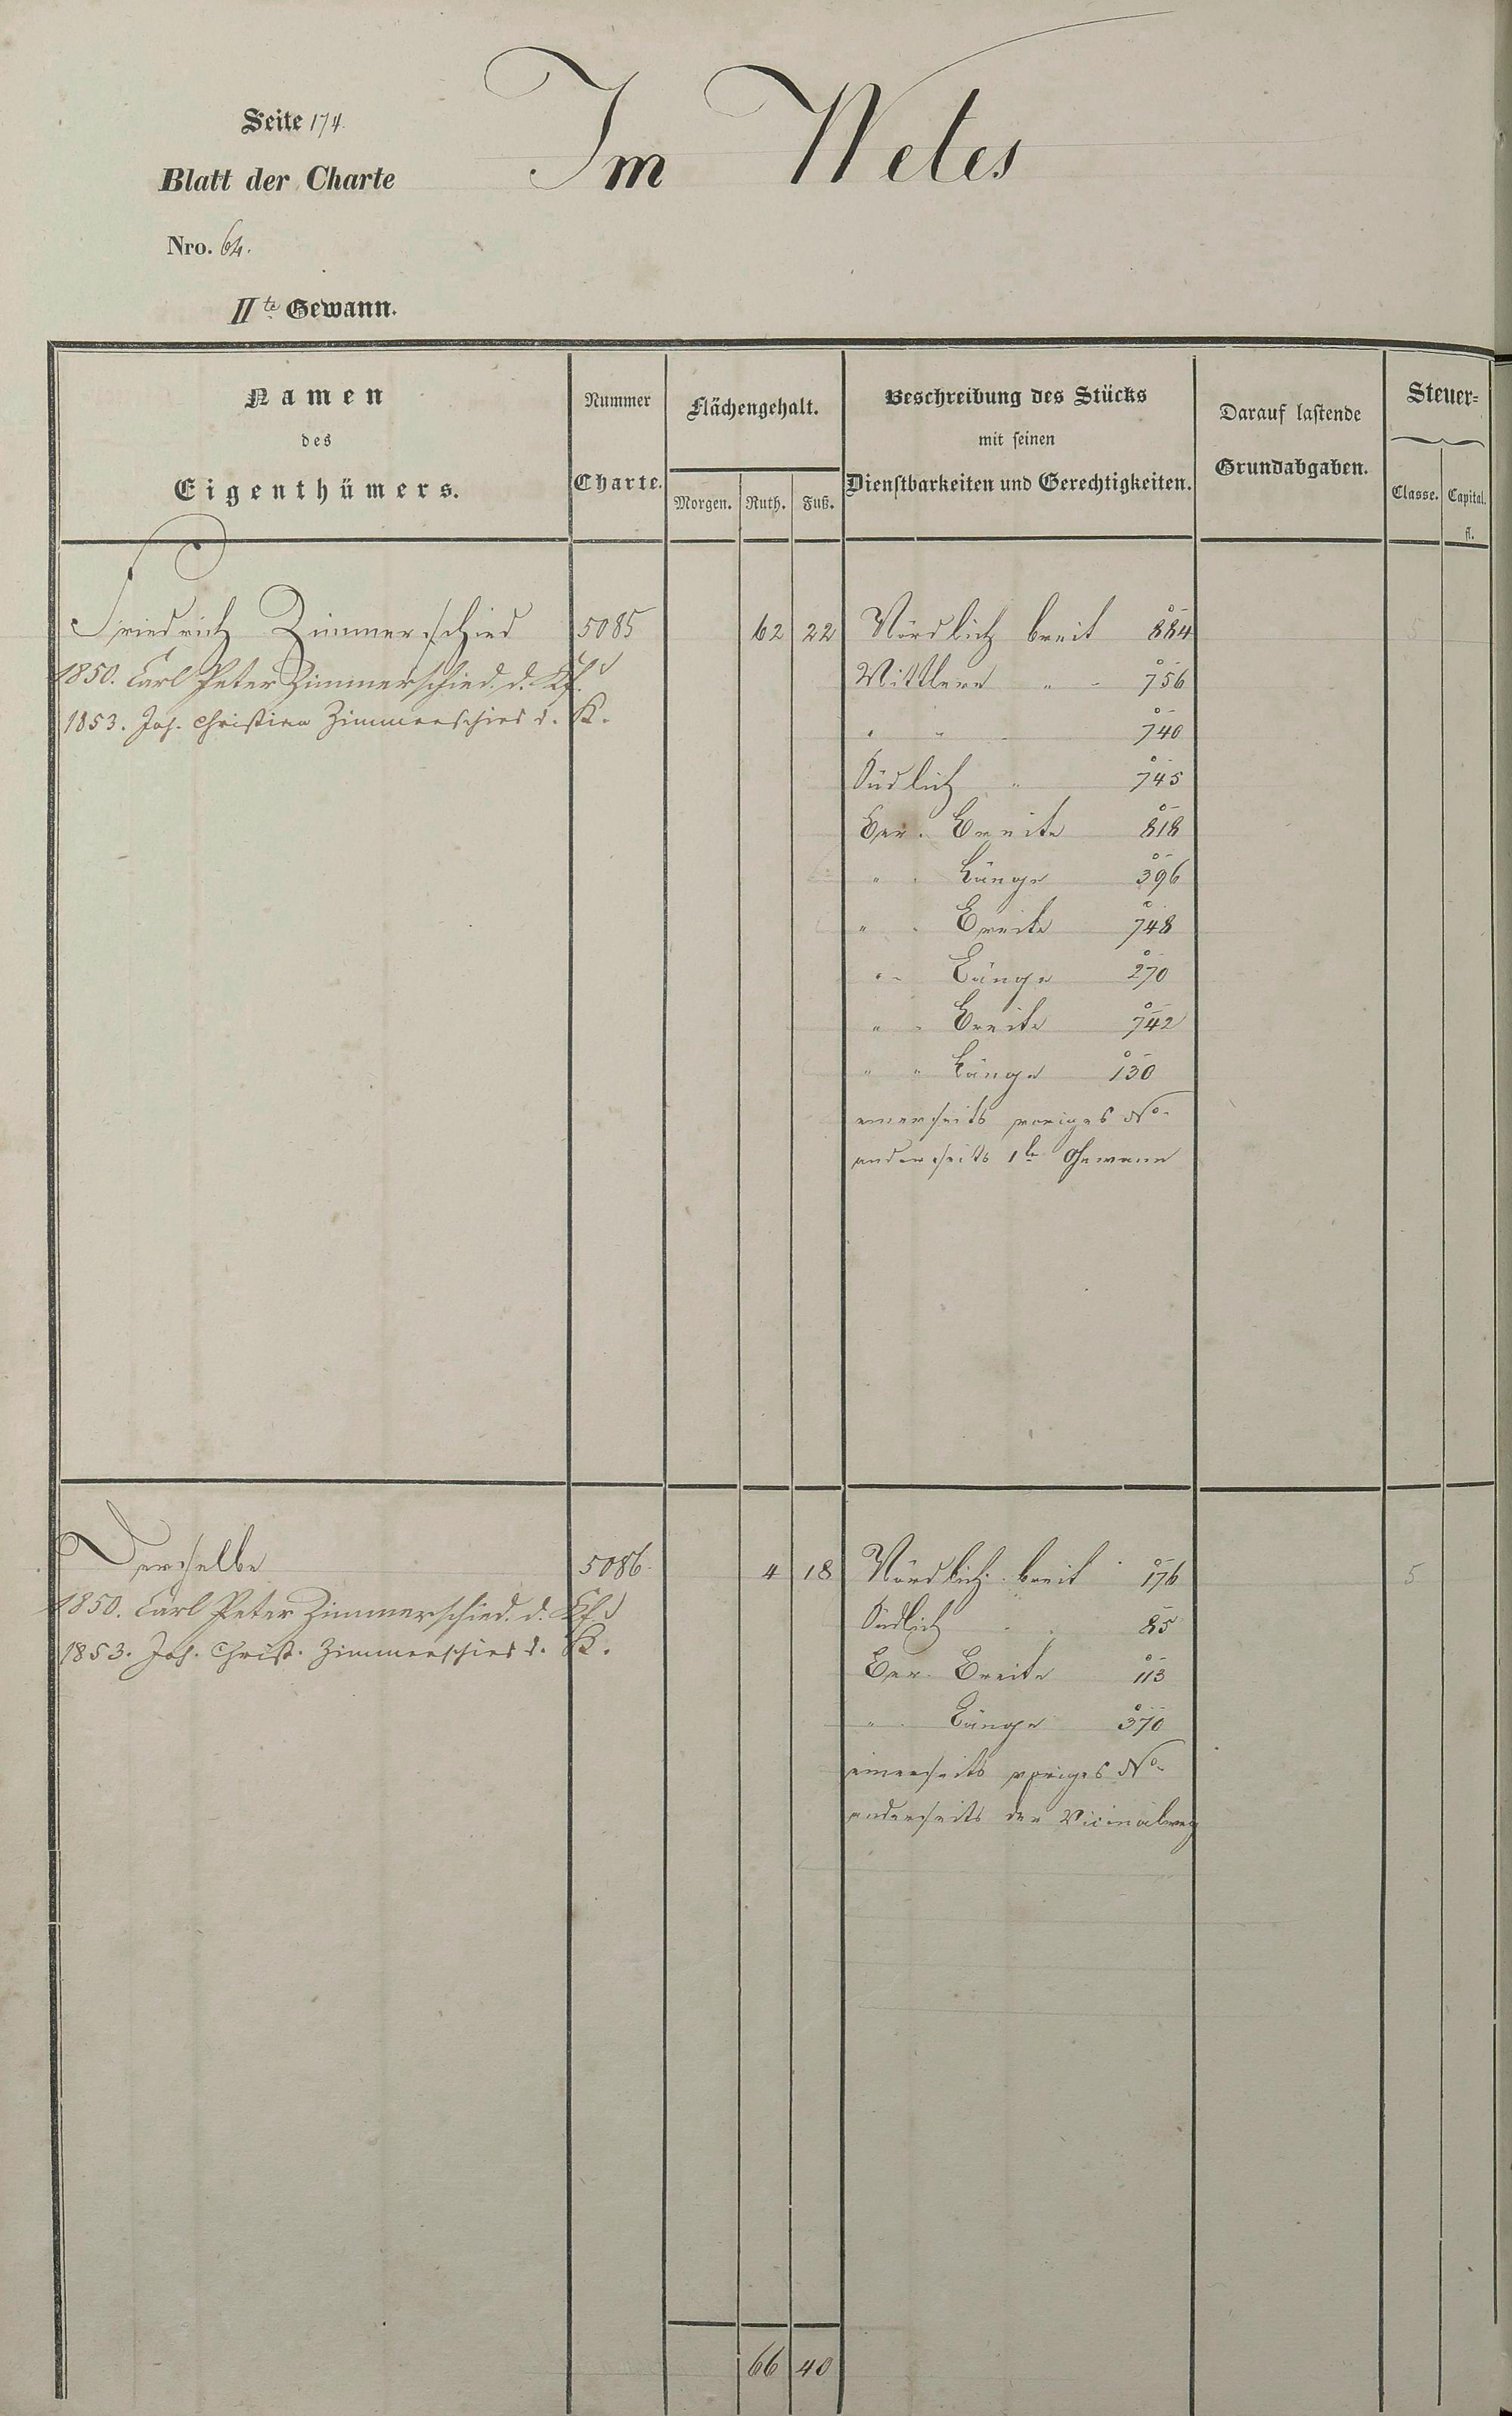 Seite 174.
Im Wetes
Blatt der Charte
Nro. 64.
IIte Gewann.
Namen
des
Eigenthümers.
Nummer
Charte.
Flächengehalt.
Morgen. Ruth. Fuß.
Beschreibung des Stücks
mit seinen
Dienstbarkeiten und Gerechtigkeiten.
Darauf lastende
Grundabgaben.
Steuer=
Classe. Capital.
fl.
Friedrich Zimmerschied 5085 62 22 Nördlich breit 884 5
1850. Carl Peter Zimmerschied. d. Kf. Mittlere " " 756
1853. Joh. Christian Zimmerschied d. K.
" " 740
Südlich " 745
Ber. Breite 818
" " Länge 396
" " Breite 748
" " Länge 270
" " Breite 742
" " Länge 130
einerseits voriges No.
anderseits 1te Gewann
Derselbe 5086. 4 18 Nördlich breit 176 5
1850. Carl Peter Zimmerschied. d. Kf.
Südlich " " 85
1853. Joh. Christ. Zimmerschied d. K.
Ber. Breite 113
" " Länge 370
einerseits voriges No.
anderseits der Vicinalweg
66 40